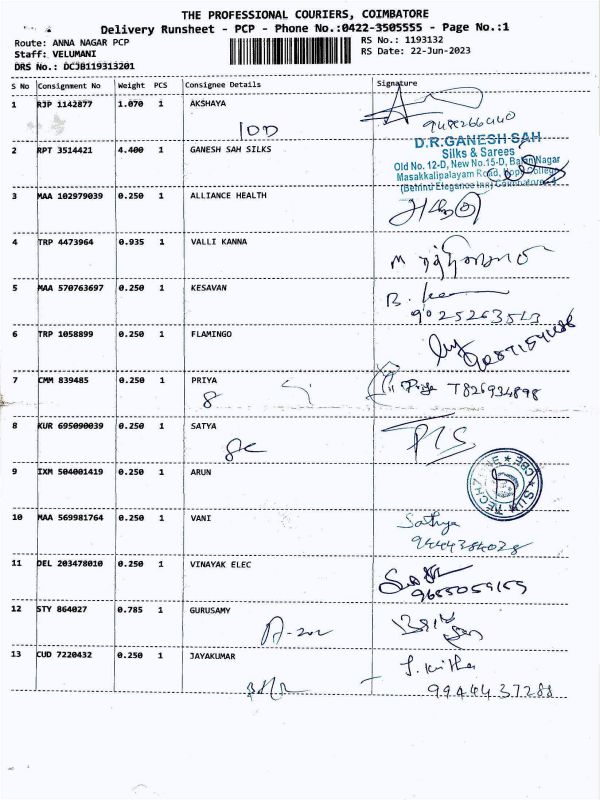 THE PROFESSIONAL COURIERS, COIMBATORE
Delivery Runsheet - PCP - Phone No.:0422-3505555 - Page No.:1
Route: ANNA NAGAR PCP
Staff: VELUMANI
DRS No.: DCJB119313201
RS No.: 1193132
RS Date: 22-Jun-2023
S No Consignment No Weight PCS Consignee Details Signature
1 RJP 1142877 1.070 1 AKSHAYA
2 RPT 3514421 4.400 1 GANESH SAH SILKS
D.R.GANESH SAH
Silks & Sarees
Old No. 12-D, New No.15-D, Balan Nagar
Masakkalipalayam Road, Hope College
(Behind Elegance Inn) Coimbatore-4
3 MAA 102979039 0.250 1 ALLIANCE HEALTH
4 TRP 4473964 0.935 1 VALLI KANNA
5 MAA 570763697 0.250 1 KESAVAN
9025263513
6 TRP 1058899 0.250 1 FLAMINGO
7 CMM 839485 0.250 1 PRIYA
8 Priya 7826934898
8 KUR 695090039 0.250 1 SATYA
9 IXM 504001419 0.250 1 ARUN
10 MAA 569981764 0.250 1 VANI
Sathya
9444384028
11 DEL 203478010 0.250 1 VINAYAK ELEC
9655059159
12 STY 864027 0.785 1 GURUSAMY
13 CUD 7220432 0.250 1 JAYAKUMAR
9944437288